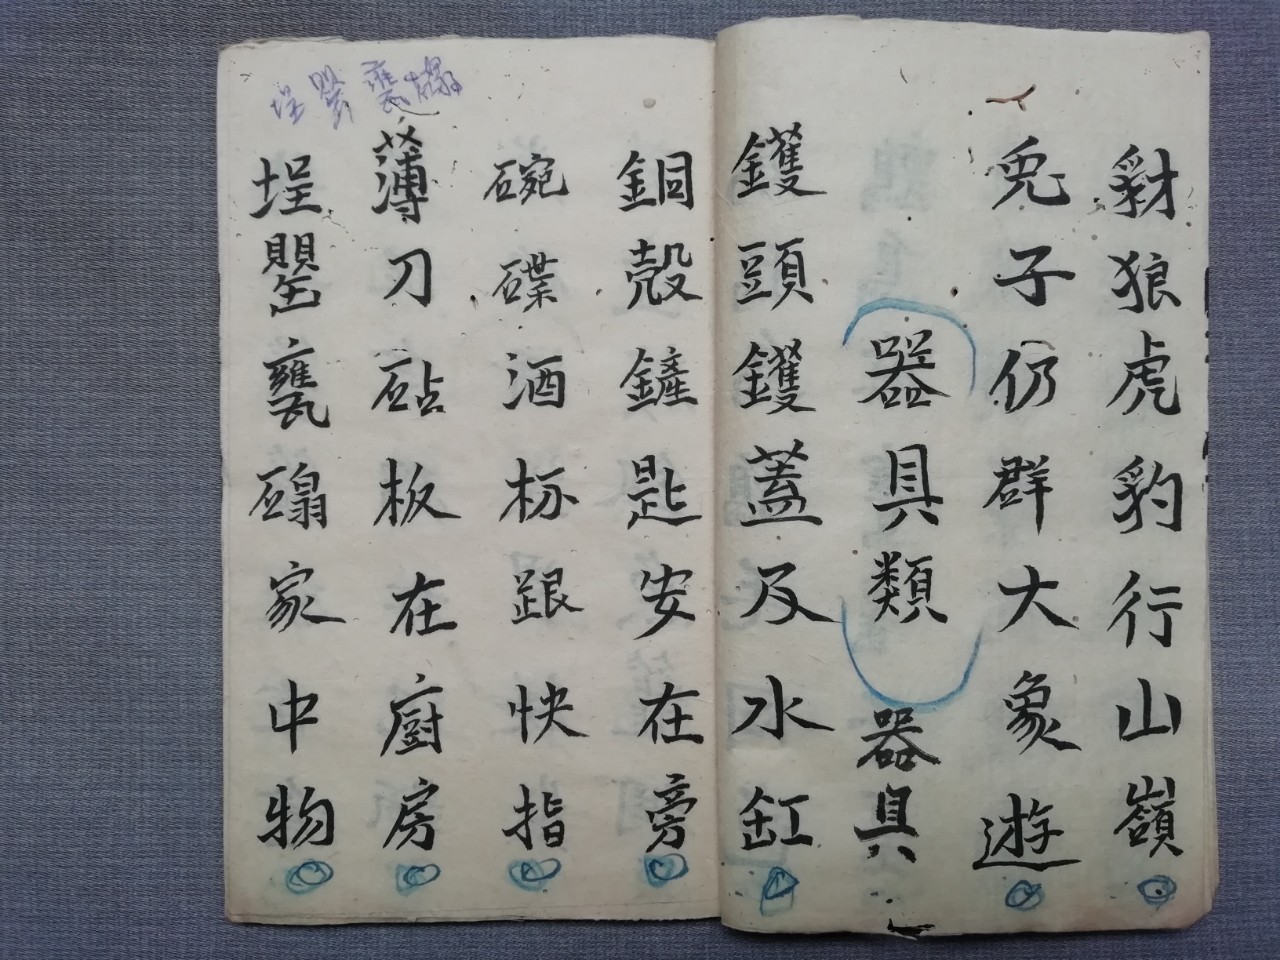 豺狼虎豹行山嶺
兎子仍群大象遊
器具類 器具
鑊頭鑊蓋及水缸
銅殼鏟匙安在旁
碗碟酒杯跟快指
薄刀砧板在厨房
埕罌甕磖家中物
埕罌甕